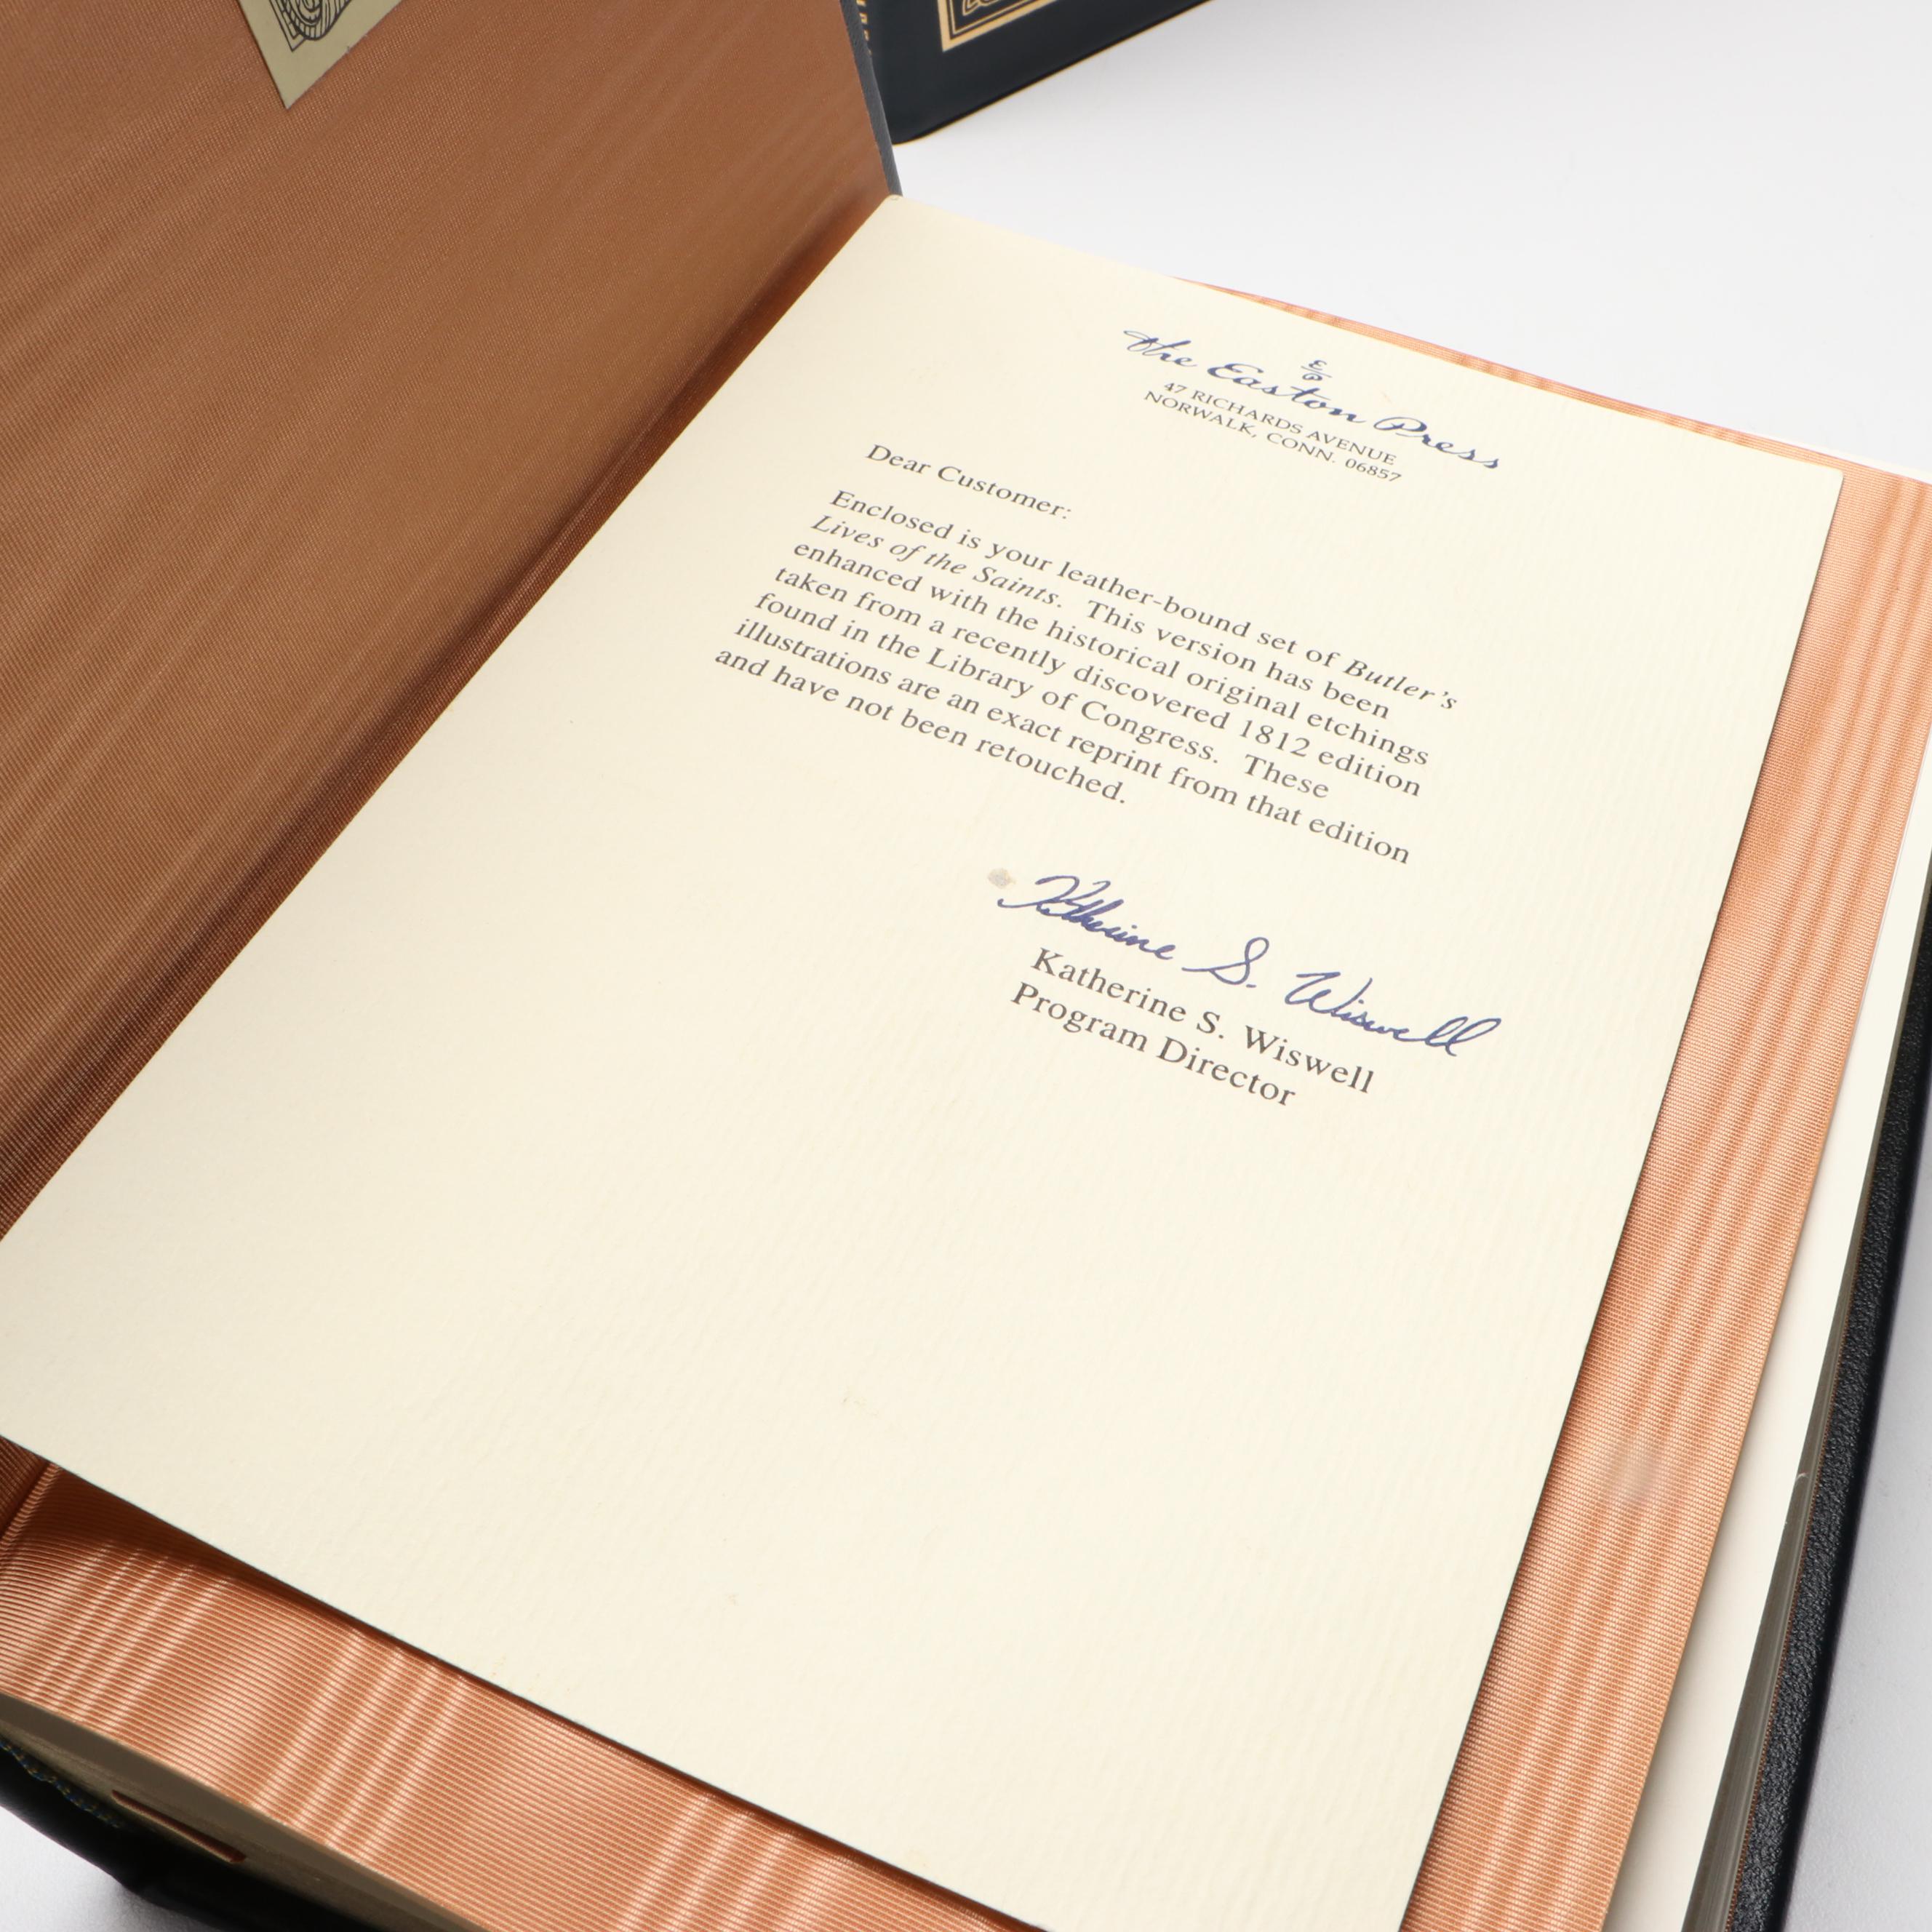 The Easton Press
47 RICHARDS AVENUE
NORWALK, CONN. 06857
Dear Customer:
Enclosed is your leather-bound set of Butler's
Lives of the Saints. This version has been
enhanced with the historical original etchings
taken from a recently discovered 1812 edition
found in the Library of Congress. These
illustrations are an exact reprint from that edition
and have not been retouched.
Katherine S. Wiswell
Katherine S. Wiswell
Program Director